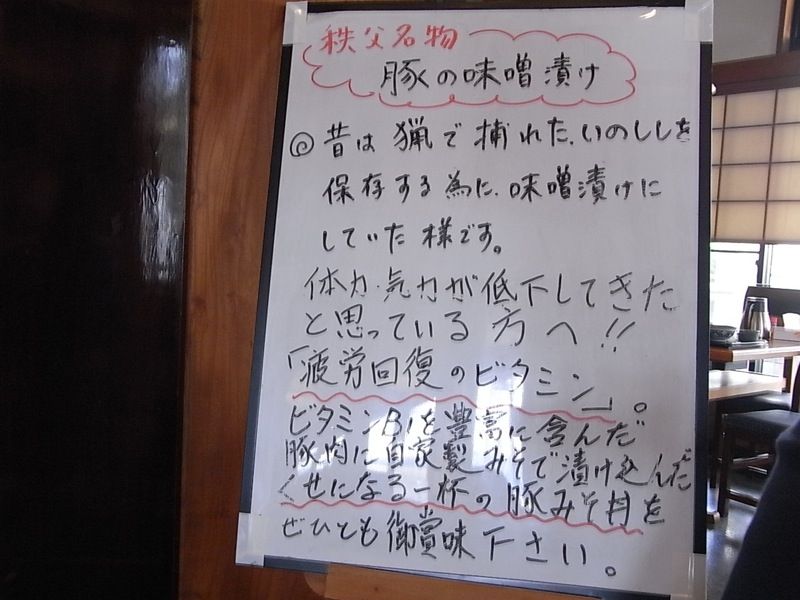 秩父名物
豚の味噌漬け
◎昔は猟で捕れた、いのししを
保存する為に、味噌漬けに
していた様です。
体力・気力が低下してきた
と思っている方へ!!
「疲労回復のビタミン」。
ビタミンB1を豊富に含んだ
豚肉に自家製みそで漬け込んだ
くせになる一杯の豚みそ丼を
ぜひとも御賞味下さい。